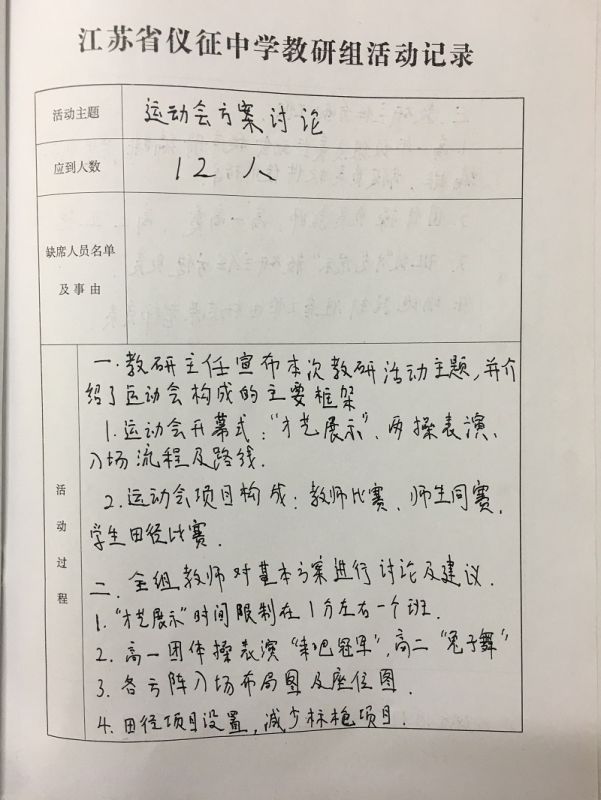 江苏省仪征中学教研组活动记录
活动主题
运动会方案讨论
应到人数
12人
缺席人员名单
及事由
活动过程
一.教研主任宣布本次教研活动主题,并介
绍了运动会构成的主要框架
1.运动会开幕式:"才艺展示"、两操表演、
入场流程及路线.
2.运动会项目构成:教师比赛、师生同赛,
学生田径比赛.
二.全组教师对基本方案进行讨论及建议.
1."才艺展示"时间限制在1分左右一个班.
2.高一团体操表演"来吧冠军",高二"兔子舞"
3.各方阵入场布局图及座位图.
4.田径项目设置,减少标枪项目.